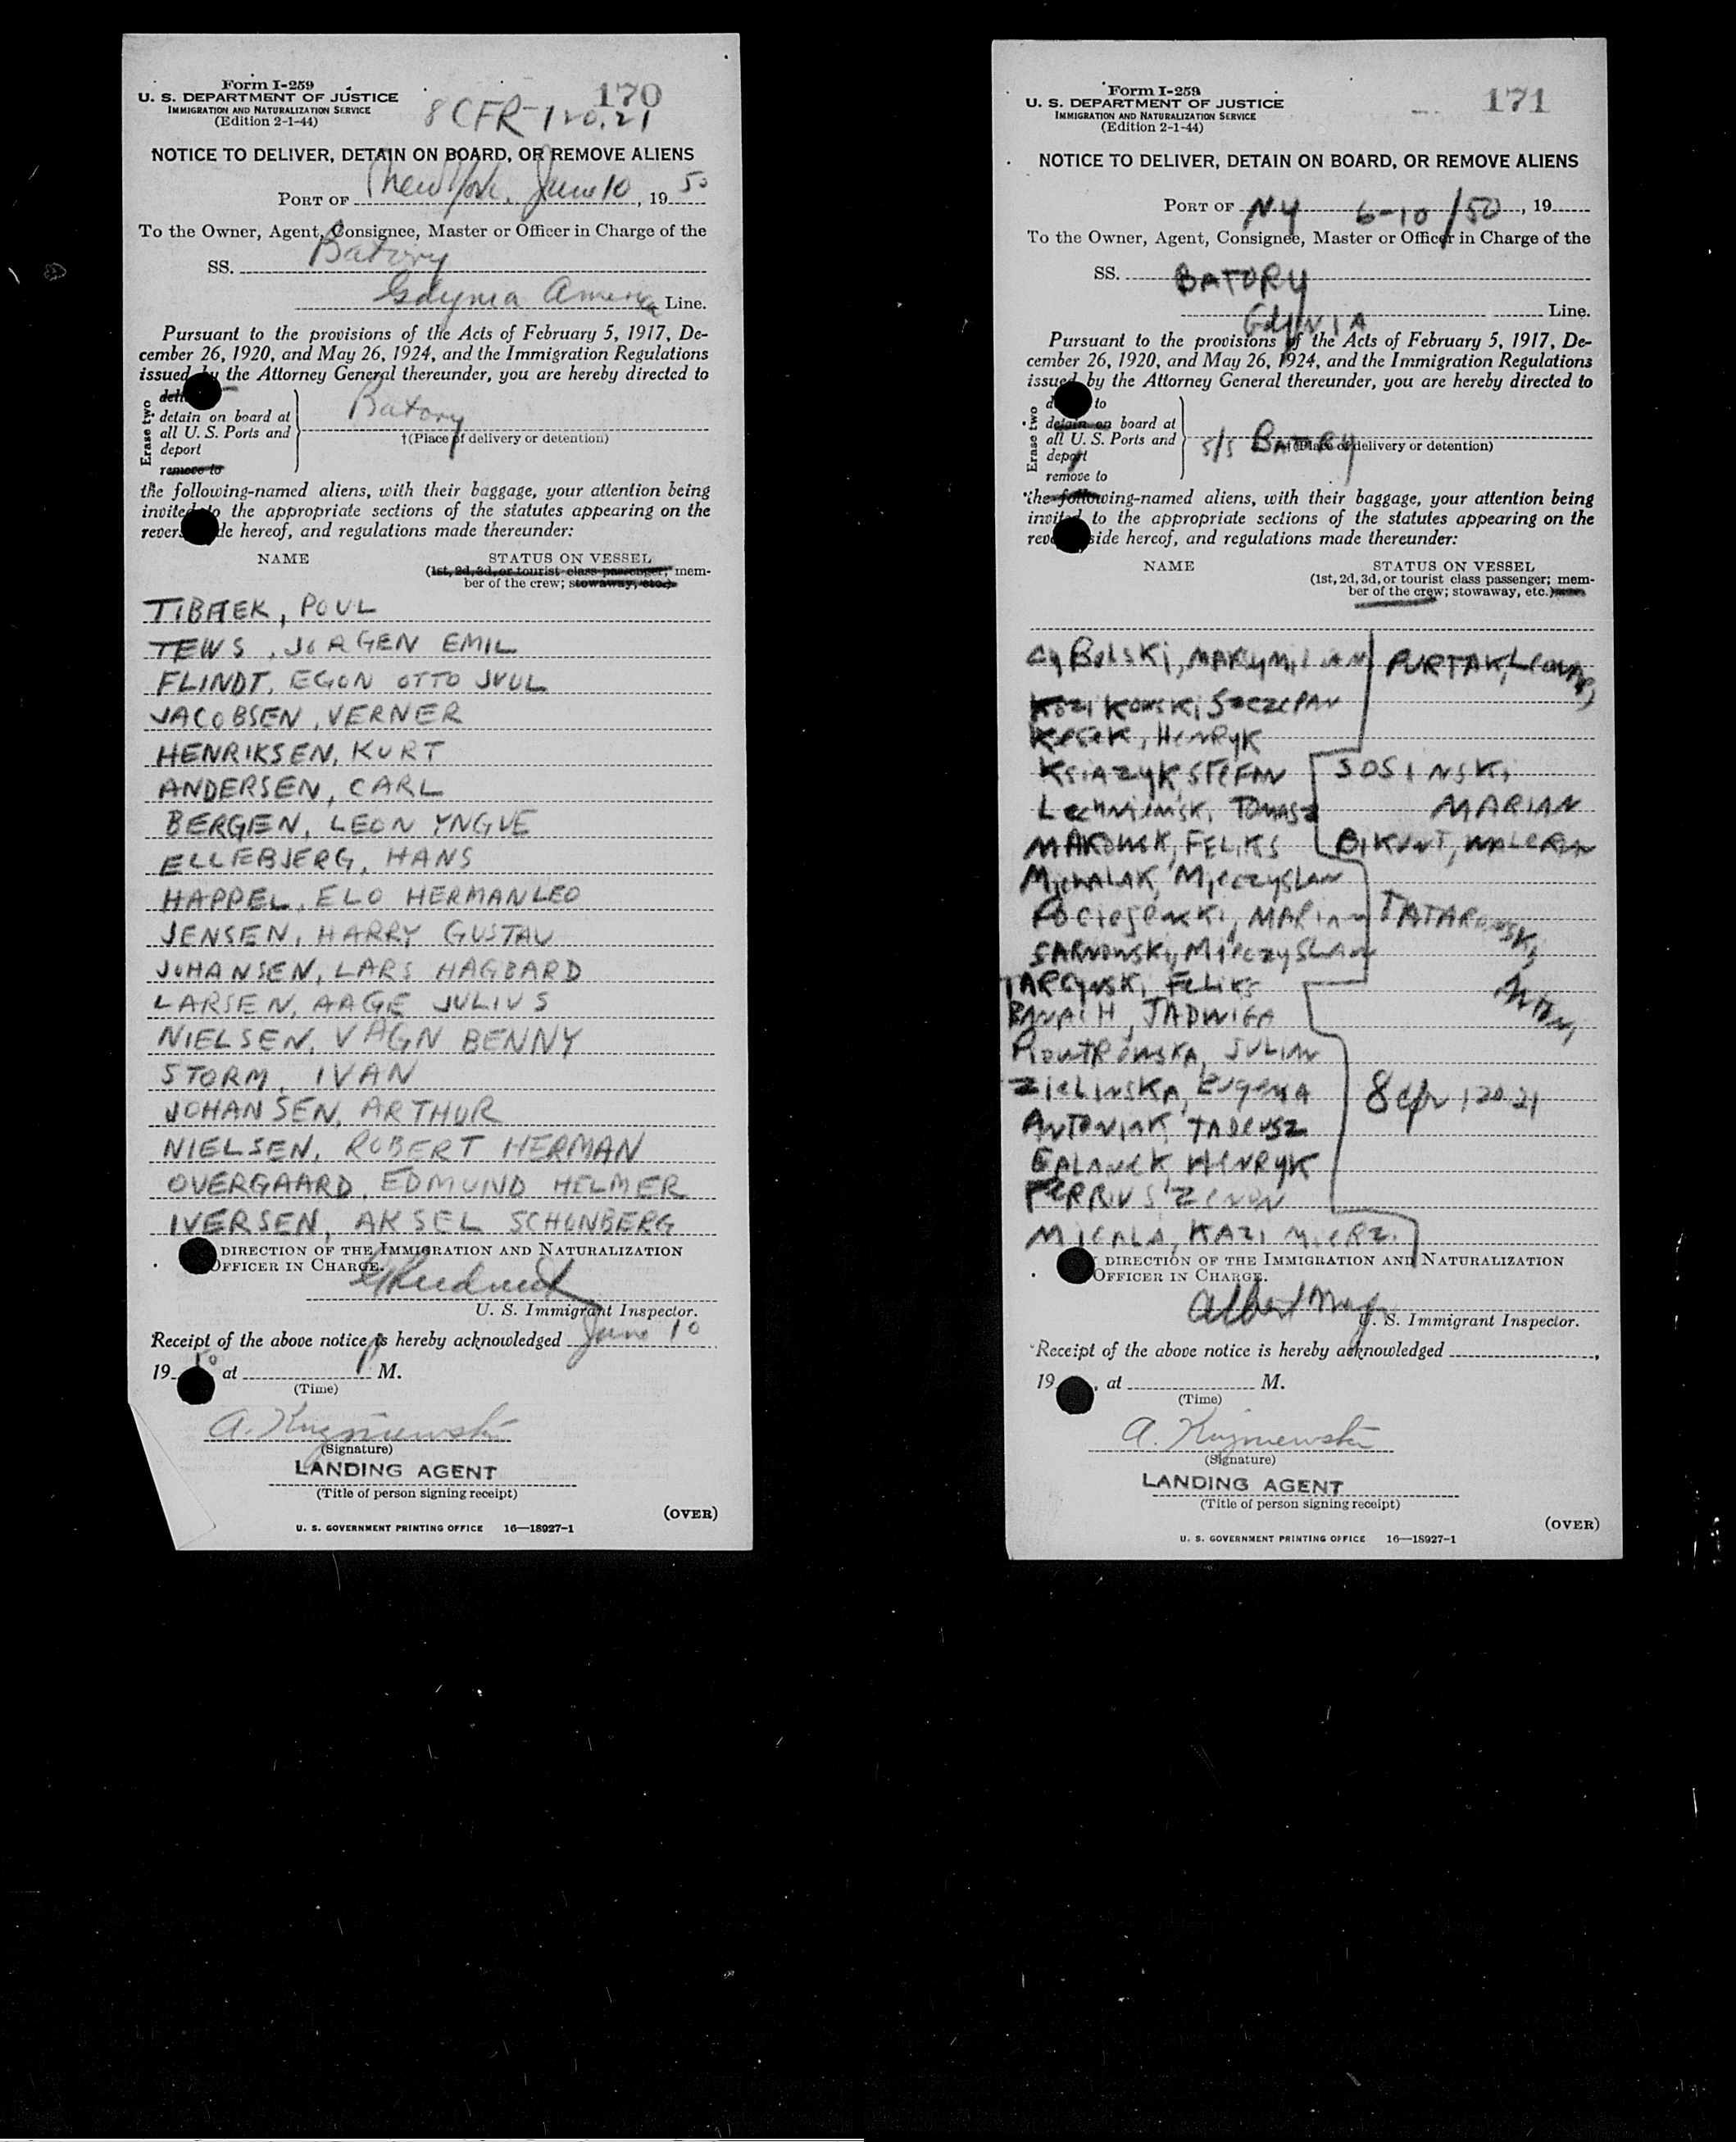 Form I-259
170
U. S. DEPARTMENT OF JUSTICE
IMMIGRATION AND NATURALIZATION SERVICE
(Edition 2-1-44)
8 CFR-120.21
NOTICE TO DELIVER, DETAIN ON BOARD, OR REMOVE ALIENS
PORT OF New York, June 10, 19 50
To the Owner, Agent, Consignee, Master or Officer in Charge of the
SS. Batory
Gdynia America Line.
Pursuant to the provisions of the Acts of February 5, 1917, De-
cember 26, 1920, and May 26, 1924, and the Immigration Regulations
issued by the Attorney General thereunder, you are hereby directed to
Erase two
detain on board at
all U. S. Ports and
deport
remove to
Batory
†(Place of delivery or detention)
the following-named aliens, with their baggage, your attention being
invited to the appropriate sections of the statutes appearing on the
reverse side hereof, and regulations made thereunder:
NAME
STATUS ON VESSEL
(1st, 2d, 3d, or tourist class passenger; mem-
ber of the crew; stowaway, etc.)
POUL
TEWS, JORGEN EMIL
FLINDT, EGON OTTO JUUL
JACOBSEN, VERNER
HENRIKSEN, KURT
ANDERSEN, CARL
BERGEN, LEON YNGVE
ELLEBJERG, HANS
HAPPEL, ELO HERMAN LEO
JENSEN, HARRY GUSTAV
JOHANSEN, LARS HAGBARD
LARSEN, AAGE JULIUS
NIELSEN, VAGN BENNY
STORM, IVAN
JOHANSEN, ARTHUR
NIELSEN, ROBERT HERMAN
OVERGAARD, EDMUND HELMER
IVERSEN, AKSEL SCHONBERG
DIRECTION OF THE IMMIGRATION AND NATURALIZATION
OFFICER IN CHARGE.
U. S. Immigrant Inspector.
Receipt of the above notice is hereby acknowledged June 10
19 50 at M.
(Time)
A. Kuzniewski
(Signature)
LANDING AGENT
(Title of person signing receipt)
(OVER)
U. S. GOVERNMENT PRINTING OFFICE 16—18927-1
Form I-259
171
U. S. DEPARTMENT OF JUSTICE
IMMIGRATION AND NATURALIZATION SERVICE
(Edition 2-1-44)
NOTICE TO DELIVER, DETAIN ON BOARD, OR REMOVE ALIENS
PORT OF NY 6-10/50, 19
To the Owner, Agent, Consignee, Master or Officer in Charge of the
SS. BATORY
GdyNIA Line.
Pursuant to the provisions of the Acts of February 5, 1917, De-
cember 26, 1920, and May 26, 1924, and the Immigration Regulations
issued by the Attorney General thereunder, you are hereby directed to
Erase two
to
detain on board at
all U. S. Ports and
deport
remove to
S/S BATORY
†(Place of delivery or detention)
the following-named aliens, with their baggage, your attention being
invited to the appropriate sections of the statutes appearing on the
reverse side hereof, and regulations made thereunder:
NAME
STATUS ON VESSEL
(1st, 2d, 3d, or tourist class passenger; mem-
ber of the crew; stowaway, etc.)
CyBulski, MAKSYMILIAN
PURTAK,
SZCZEPAN
HENRYK
KSIAZYK, STEFAN
SOSINSKI,
TOMASZ
MARIAN
FELIKS
BIKUNT, WALERIAN
MICHALAK, MIECZYSLAW
MARIAN
SARNOWSKI, MIECZYSLAW
FELIKS
JADWIGA
ZIELINSKA, EUGENIA
8 cfr 120.21
ANTONIAK, TADEUSZ
HENRYK
ZENON
DIRECTION OF THE IMMIGRATION AND NATURALIZATION
OFFICER IN CHARGE.
Albert
U. S. Immigrant Inspector.
Receipt of the above notice is hereby acknowledged ,
19 , at M.
(Time)
A. Kuzniewski
(Signature)
LANDING AGENT
(Title of person signing receipt)
(OVER)
U. S. GOVERNMENT PRINTING OFFICE 16—18927-1